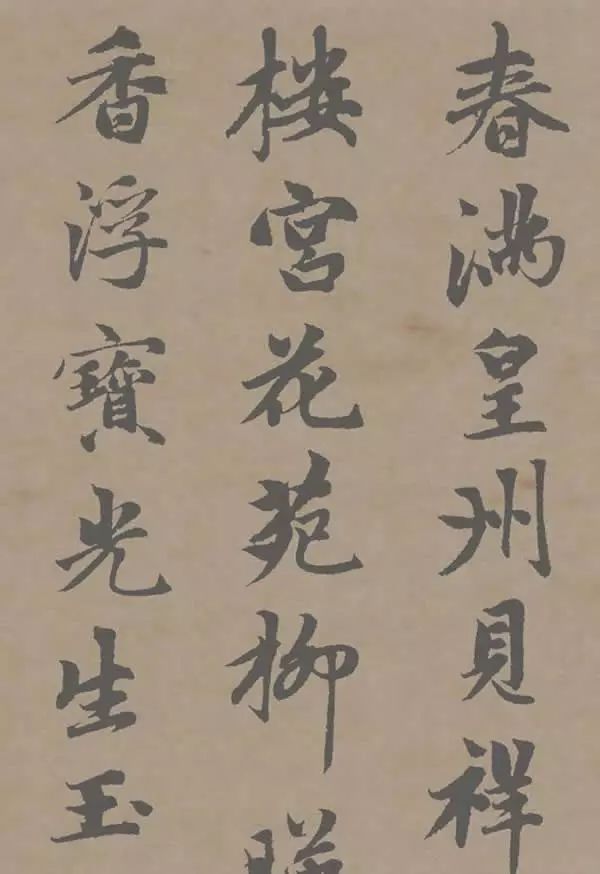 春滿皇州見祥
楼宮花苑柳
香浮寶光生玉